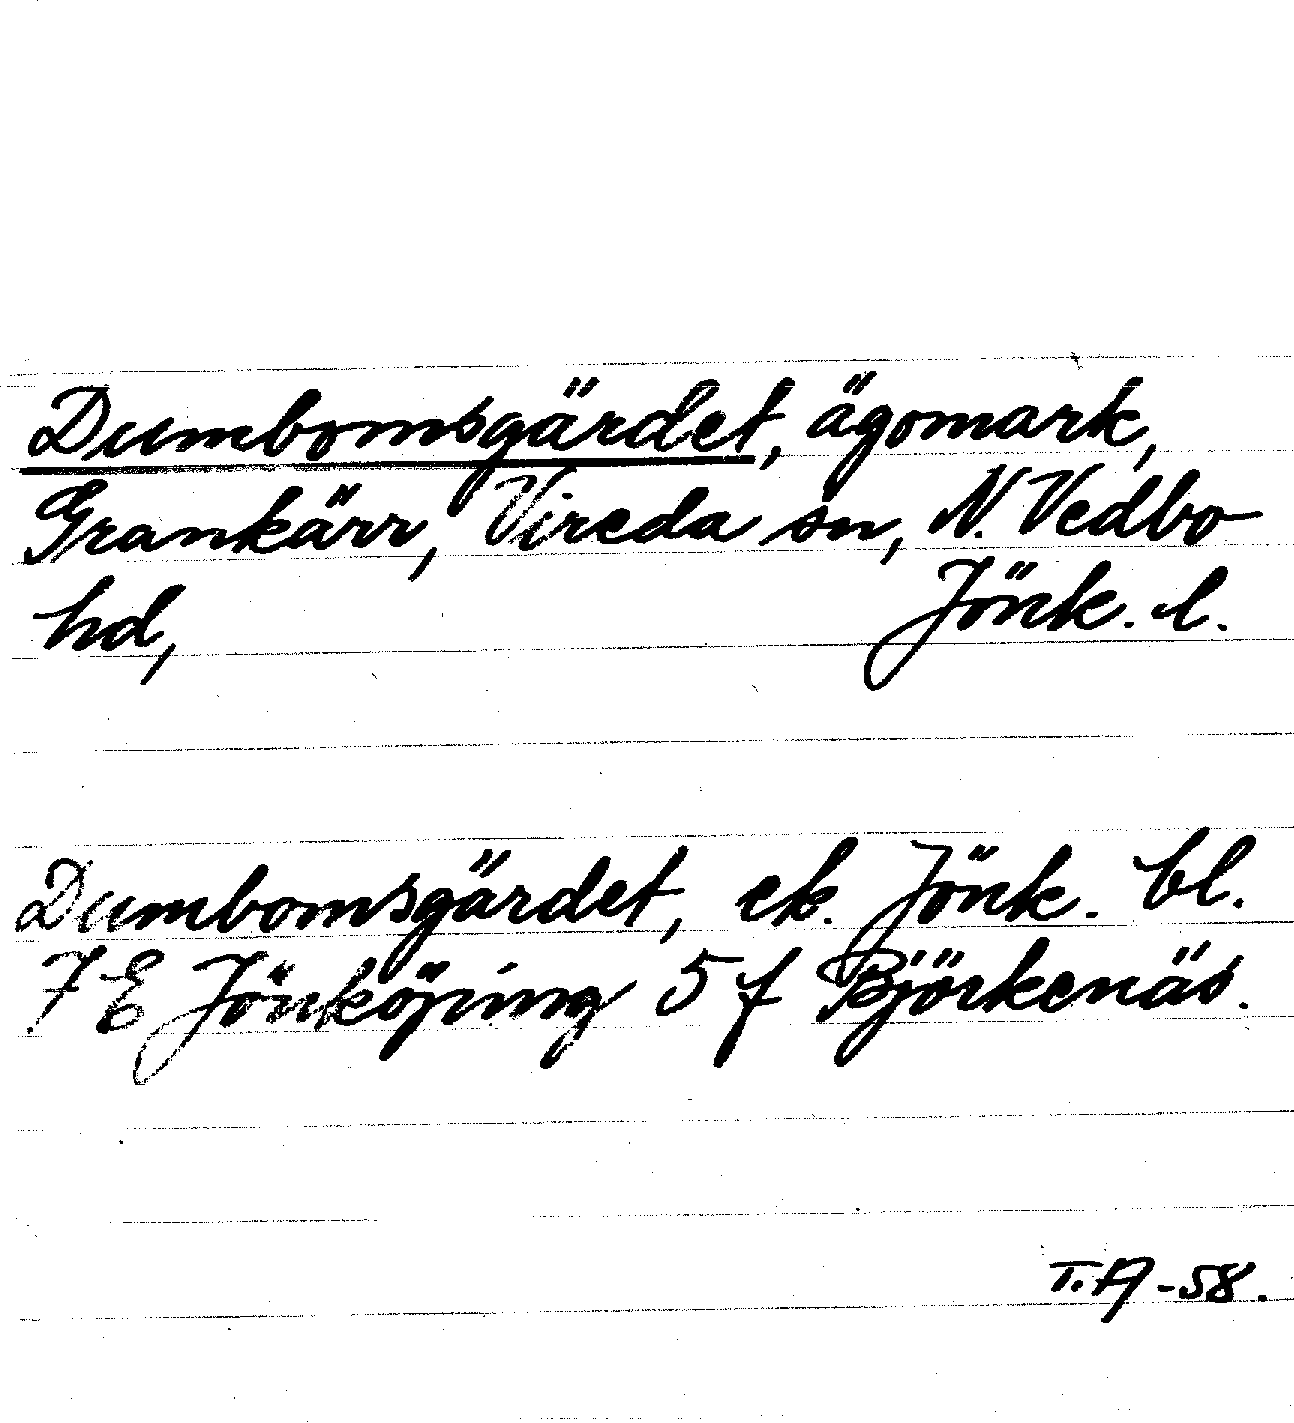 Dumbomsgärdet, ägomark,
Grankärr, Vireda sn, N. Vedbo
hd, Jönk. l.
Dumbomsgärdet, ek. Jönk. bl.
7 E Jönköping 5 f Björkenäs.
T.A -58.